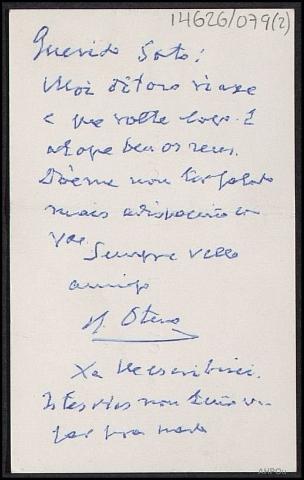 14626/079(2)
Querido Soto:
Moi ditoso viaxe
e que volte logo. E
atope ben os seus.
Dóeme non ter falado
mais adispacio con
vde.
Sempre vello
amigo
Otero
Xa lle escribirei.
Istes días non teño
pra nada